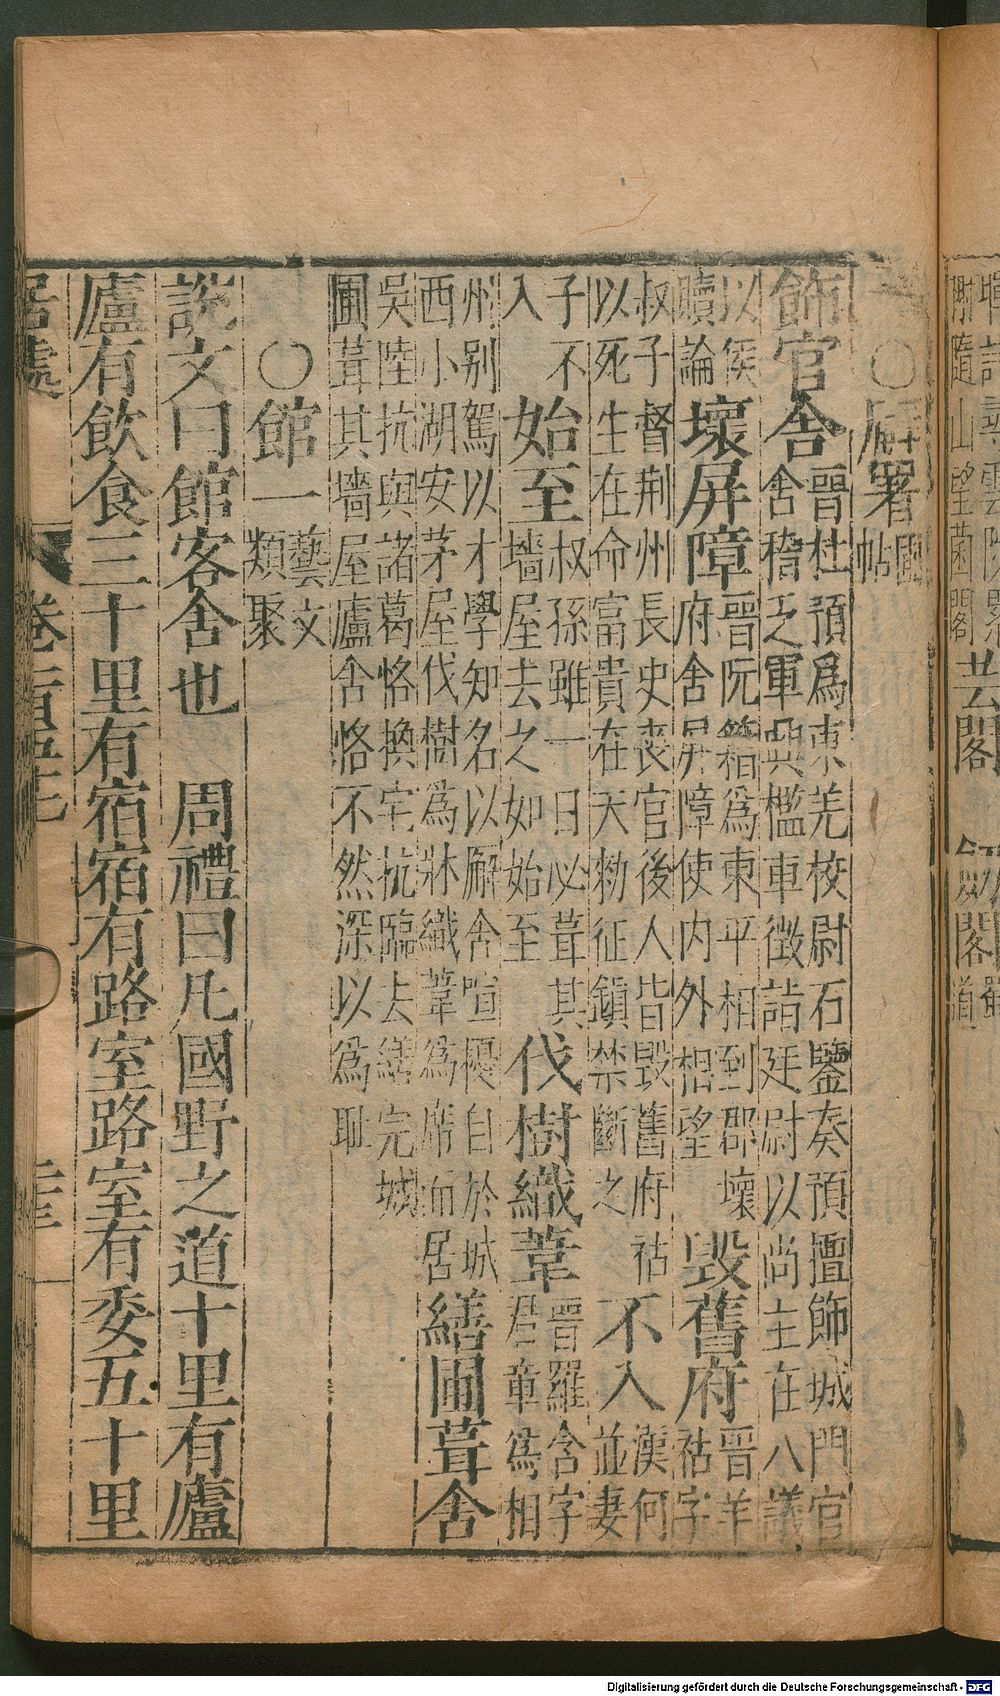 芸閣
劒閣
〇廨署 帖
飾官舍 晉杜預爲東羌校尉石鑒奏預擅飾城門官
舍稽乏軍興檻車徵詣廷尉以尚主在八議
以侯
贖論 壞屏障 晉阮籍爲東平相到郡壞
府舍屏障使内外相望 毀舊府 晉羊
祜字
叔子督荆州長史喪官後人皆毀舊府祜
以死生在命富貴在天勑征鎮禁斷之 不入 漢何
並妻
子不
入 始至 叔孫雖一日必葺其
墻屋去之如始至 伐樹織葦 晉羅含字
君章爲相
州别駕以才學知名以廨舍喧擾自於城
西小湖安茅屋伐樹爲牀織葦爲席而居 繕圃葺舍
吳陸抗與諸葛恪換宅抗臨去繕完城
圃葺其墻屋廬舍恪不然深以爲耻
〇館一 藝文
類聚
說文曰館客舍也 周禮曰凡國野之道十里有廬
廬有飲食三十里有宿宿有路室路室有委五十里
居處 卷一百
Digitalisierung gefördert durch die Deutsche Forschungsgemeinschaft - DFG